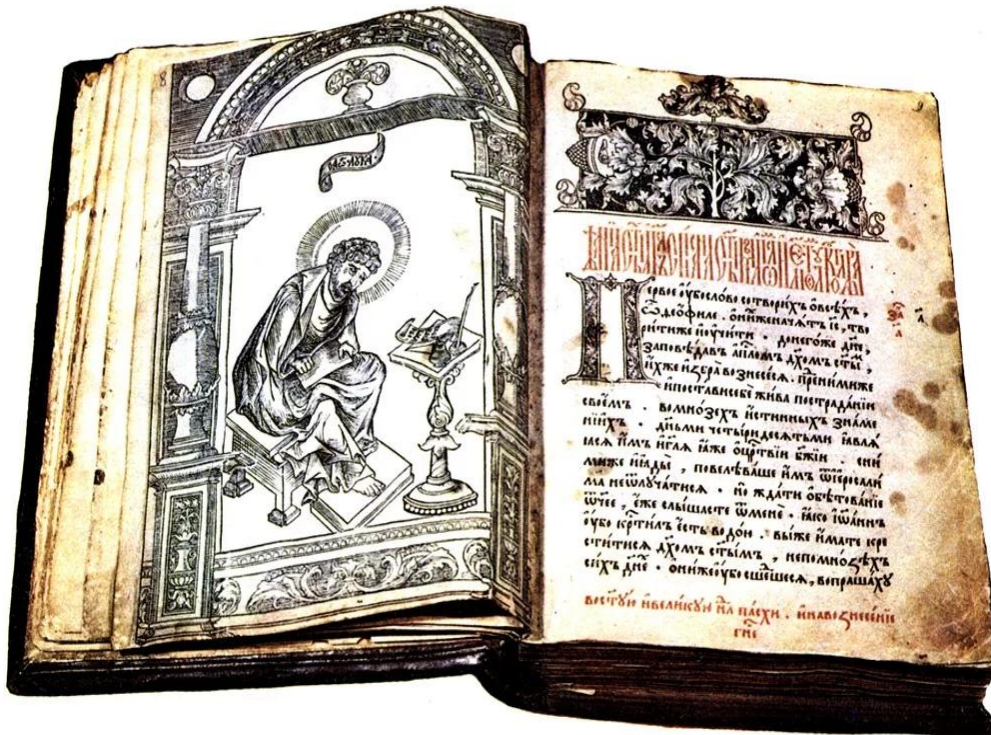 Первое ᲂу҆бо сло́во сотвори́хъ ѡ҆ всѣ́хъ,
ѽ, ѳео́филе. ѡ҆ ни́хже нача́тъ іс҃, тво
ри́тиже и҆ ᲂу҆чи́ти. до него́же дн҃е,
заповѣ́давъ а҆пⷭ҇ломъ дх҃омъ ст҃ы́мъ,
и҆́хже и҆збра̀ вознесе́сѧ. пре́д ни́миже
и҆ поста́ви себѐ жи́ва по страда́нїи
свое́мъ. во мно́зехъ и҆́стинныхъ зна́ме
нїихъ. дн҃ьми четы́ридесѧтьми ꙗ҆влѧ́
ꙗсѧ и҆̀мъ и҆ гл҃ѧ ꙗ҆́же ѡ҆ црⷭ҇твїи бж҃їи с ни́
миже и҆ ꙗ҆ды̀, повелѣва́ше и҆̀мъ ѿ і҆ерⷭ҇али
ма не ѿлуча́тисѧ. но жда́ти ѡ҆бѣтова́нїе
ѻ҆́ч҃ее, є҆́же слы́шасте ѿ менѐ. ꙗ҆́ко і҆ѡа́ннъ
ᲂу҆́бо крⷭ҇ти́лъ є҆́сть водо́ю. вы́же и҆́мате кре
сти́тисѧ дх҃омъ ст҃ы́мъ, не по мно́ѕѣхъ
си́хъ дн҃е. ѻ҆ни́же ᲂу҆̀бо сше́дшесѧ, вопраша́ху
во ст҃у́ю и҆ вели́кую нⷣлѧ па́схи. и҆ на вознесе́нїе
гнⷭ҇е